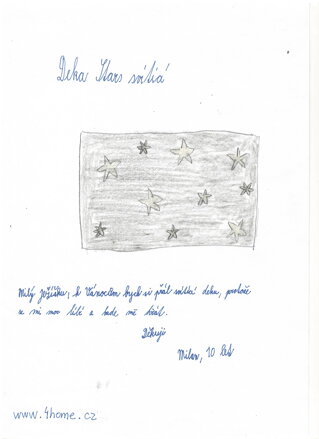 Deka Stars svítící
Milý Ježíšku, k Vánocům bych si přál svítící deku, protože
se mi moc líbí a bude mě hřát.
Děkuji
Milan, 10 let
www.4home.cz